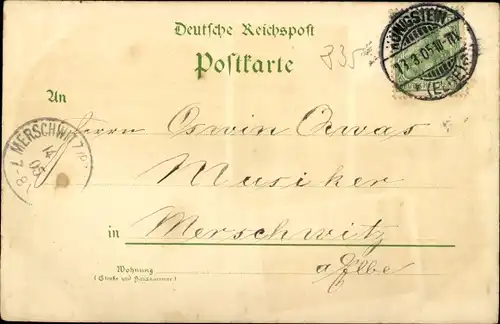 Deutsche Reichspost
Postkarte
835
KÖNIGSTEIN
13.3.05.10-11V
(ELBE)
An
MERSCHWITZ
14
3
05
7-8
Herrn Oswin
Musiker
in Merschwitz
a/Elbe
Wohnung
(Straße und Hausnummer)